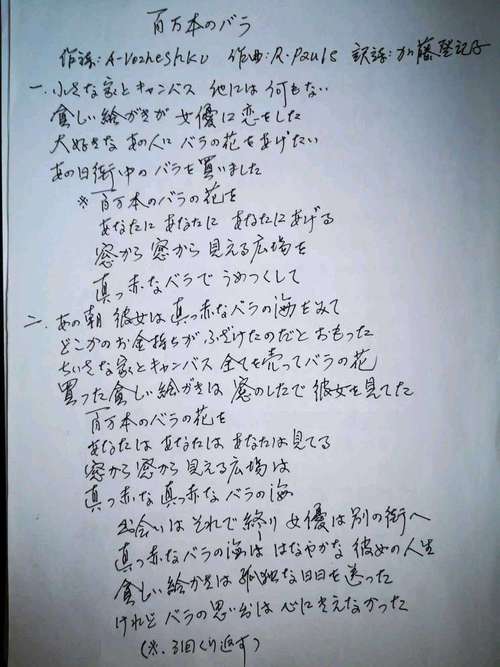 百万本のバラ
作詩:A・Vozneshku 作曲:R.Pauls 訳詩:加藤登記子
一.小さな家とキャンバス 他には何もない
貧しい絵がきが 女優に恋をした
大好きな あの人に バラの花をあげたい
あの日街中の バラを買いました
※百万本のバラの花を
あなたに あなたに あなたにあげる
窓から 窓から 見える広場を
真っ赤なバラで うめつくして
二.あの朝 彼女は 真っ赤なバラの海をみて
どこかのお金持ちが ふざけたのだと おもった
ちいさな家とキャンバス 全てを売ってバラの花
買った貧しい絵がきは 窓のしたで 彼女を見てた
百万本のバラの花を
あなたは あなたは あなたは見てる
窓から 窓から 見える広場は
真っ赤な 真っ赤な バラの海
出会いは それで終り 女優は別の街へ
真っ赤なバラの海は はなやかな 彼女の人生
貧しい絵かきは 孤独な日日を送った
けれど バラの思い出は 心にきえなかった
(※.3回くり返す)